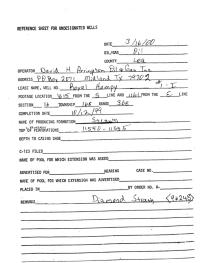 REFERENCE SHEET FOR UNDESIGNATED WELLS
DATE 3/16/00
OIL/GAS Oil
COUNTY Lea
OPERATOR David H. Arrington Oil & Gas Inc
ADDRESS PO Box 2071 Midland Tx 79702
LEASE NAME, WELL NO. Royal #1 - I
FOOTAGE LOCATION 615 FROM THE S LINE AND 1161 FROM THE LINE
SECTION 16 TOWNSHIP 16S RANGE 36E
COMPLETION DATE 10/12/99
NAME OF PRODUCING FORMATION Strawn
TOP OF PERFORATIONS 11540 - 11595
DEPTH TO CASING SHOE
C-123 FILED
NAME OF POOL FOR WHICH EXTENSION WAS ASKED
ADVERTISED FOR HEARING CASE NO.
NAME OF POOL FOR WHICH EXTENSION WAS ADVERTISED
PLACED IN BY ORDER NO. R-
REMARKS Diamond Strawn <96245>